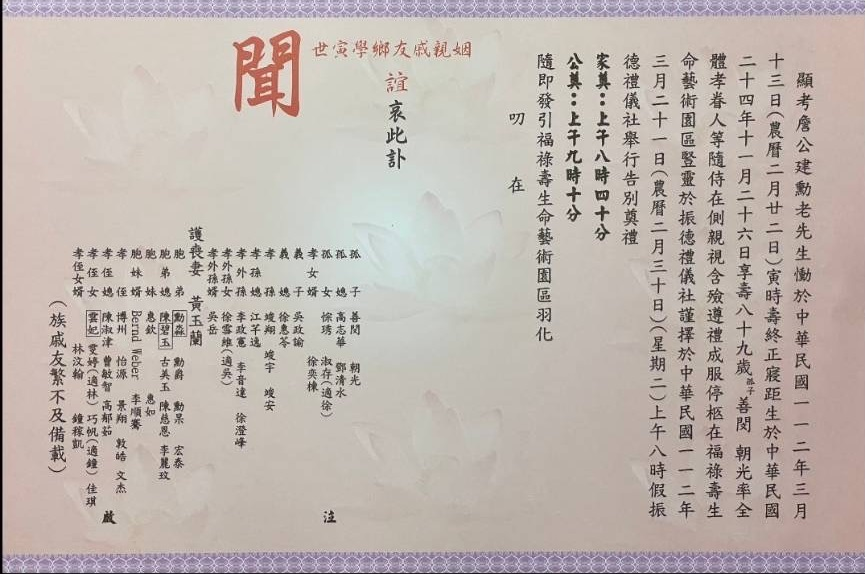 顯考詹公建勳老先生慟於中華民國一一二年三月
十三日(農曆二月廿二日)寅時壽終正寢距生於中華民國
二十四年十一月二十六日享壽八十九歲孤子善閔 朝光率全
體孝眷人等隨侍在側親視含殮遵禮成服停柩在福祿壽生
命藝術園區豎靈於振德禮儀社謹擇於中華民國一一二年
三月二十一日(農曆二月三十日)(星期二)上午八時假振
德禮儀社舉行告別奠禮
家奠:上午八時四十分
公奠:上午九時十分
隨即發引福祿壽生命藝術園區羽化
叨 在
姻親戚友鄉學寅世
誼
哀此訃
聞
孤子 善閔 朝光
孤媳 高志華 鄧清水
孤女 悰琇 淑存(適徐)
孝女婿 徐奕棟
義子 吳政諭
義媳 徐惠苓
孝孫 竣翔 竣宇 竣安
孝孫媳 江芊逸
孝外孫 李政寬 李音達 徐澄峰
孝外孫女 徐雪維(適吳)
孝外孫婿 吳岳
護喪妻 黃玉蘭
胞弟 勳淼 勳爵 勳杲 宏泰
胞弟媳 陳碧玉 古美玉 陳慈恩 李麗玟
胞妹 惠欽 惠如
胞妹婿 Bernd Weber 李順騫
孝侄 博州 怡源 景翔 敦皓 文杰
孝侄媳 陳淑津 曹敏智 高郁茹
孝侄女 雲妃 雯婷(適林) 巧帆(適鐘) 佳琪
孝侄女婿 林汶翰 鐘稼凱
泣
啟
(族戚友繁不及備載)